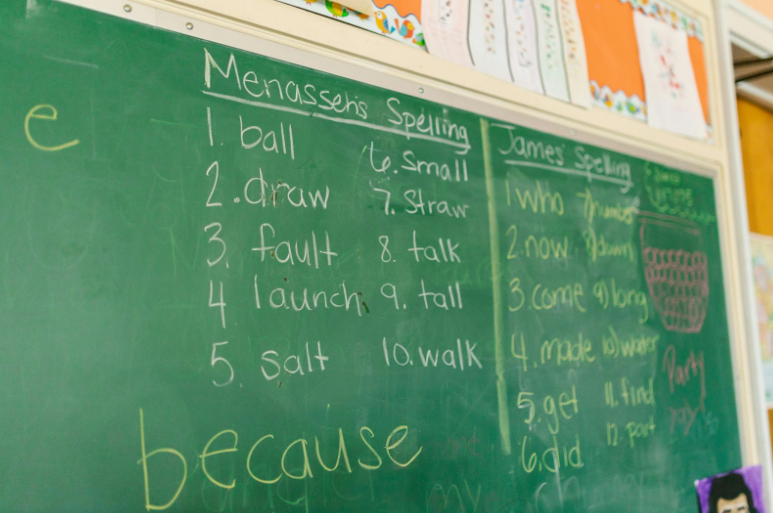 e
Menasseh's Spelling
1. ball
2. draw
3. fault
4 launch
5. salt
6. small
7. straw
8. talk
9. tall
10. walk
because
James' Spelling
1 who
2. now
3. come
4. made
5. get
6. did
7) number
8) down
9) long
10) water
11. find
12. part
Party